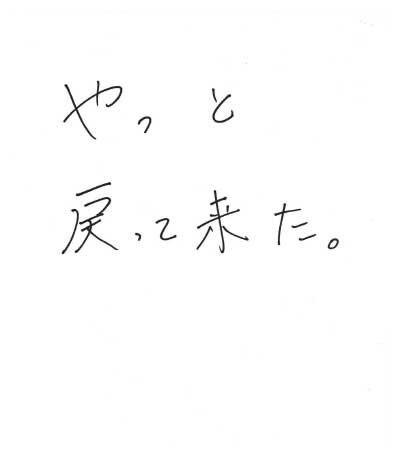 やっと
戻って来た。